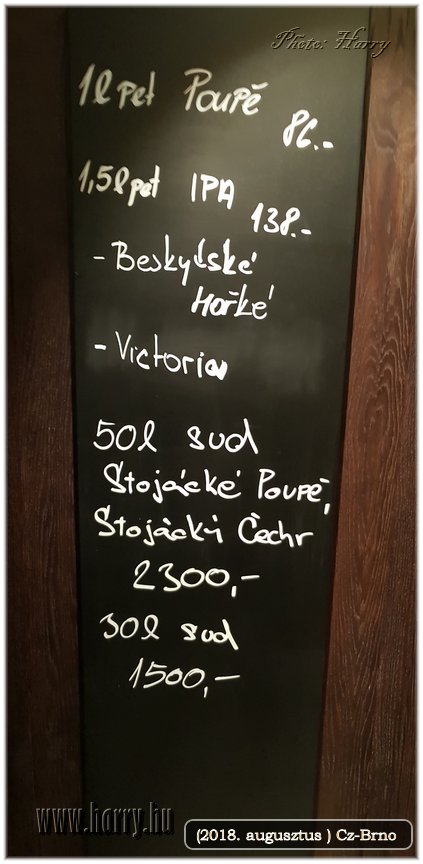 Photo: Harry
1l pet Poupě
86.-
1,5l pet IPA
138.-
- Beskydské
Hořké
- Victoria
50l sud
Stojácké Poupě,
Stojácký Čechr
2300,-
30l sud
1500,-
www.horry.hu
(2018. augusztus ) Cz-Brno